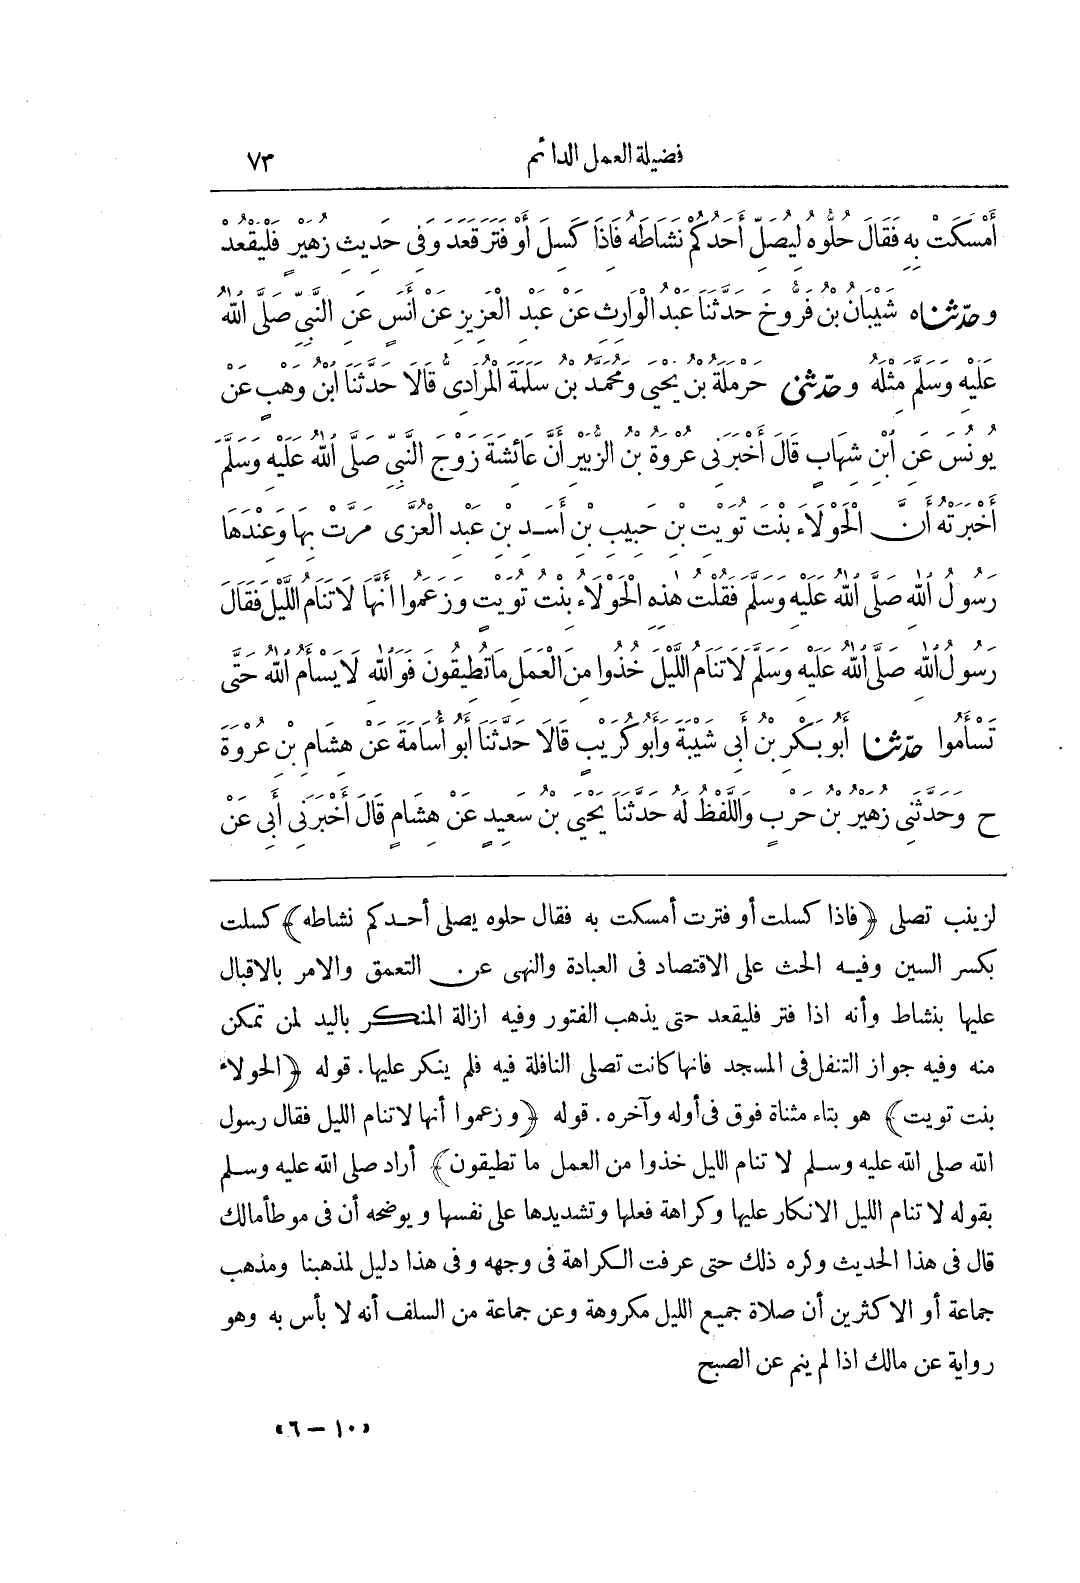 فضيلة العمل الدائم ٧٣
أَمْسَكَتْ بِهِ فَقَالَ حُلُّوهُ لِيُصَلِّ أَحَدُكُمْ نَشَاطَهُ فَإِذَا كَسِلَ أَوْ فَتَرَ قَعَدَ وَفِى حَدِيثِ زُهَيْرٍ فَلْيَقْعُدْ
و حدّثناه شَيْبَانُ بْنُ فَرُّوخَ حَدَّثَنَا عَبْدُ الْوَارِثِ عَنْ عَبْدِ الْعَزِيزِ عَنْ أَنَسٍ عَنِ النَّبِىِّ صَلَّى اللهُ
عَلَيْهِ وَسَلَّمَ مِثْلَهُ و حدّثنى حَرْمَلَةُ بْنُ يَحْيَى وَمُحَمَّدُ بْنُ سَلَمَةَ الْمُرَادِىُّ قَالَا حَدَّثَنَا ابْنُ وَهْبٍ عَنْ
يُونُسَ عَنِ ابْنِ شِهَابٍ قَالَ أَخْبَرَنِى عُرْوَةُ بْنُ الزُّبَيْرِ أَنَّ عَائِشَةَ زَوْجَ النَّبِىِّ صَلَّى اللهُ عَلَيْهِ وَسَلَّمَ
أَخْبَرَتْهُ أَنَّ الْحَوْلَاءَ بِنْتَ تُوَيْتِ بْنِ حَبِيبِ بْنِ أَسَدِ بْنِ عَبْدِ الْعُزَّى مَرَّتْ بِهَا وَعِنْدَهَا
رَسُولُ اللهِ صَلَّى اللهُ عَلَيْهِ وَسَلَّمَ فَقُلْتُ هٰذِهِ الْحَوْلَاءُ بِنْتُ تُوَيْتٍ وَزَعَمُوا أَنَّهَا لَا تَنَامُ اللَّيْلَ فَقَالَ
رَسُولُ اللهِ صَلَّى اللهُ عَلَيْهِ وَسَلَّمَ لَا تَنَامُ اللَّيْلَ خُذُوا مِنَ الْعَمَلِ مَا تُطِيقُونَ فَوَاللهِ لَا يَسْأَمُ اللهُ حَتَّى
تَسْأَمُوا حدّثنا أَبُو بَكْرِ بْنُ أَبِى شَيْبَةَ وَأَبُو كُرَيْبٍ قَالَا حَدَّثَنَا أَبُو أُسَامَةَ عَنْ هِشَامِ بْنِ عُرْوَةَ
ح وَحَدَّثَنِى زُهَيْرُ بْنُ حَرْبٍ وَاللَّفْظُ لَهُ حَدَّثَنَا يَحْيَى بْنُ سَعِيدٍ عَنْ هِشَامٍ قَالَ أَخْبَرَنِى أَبِى عَنْ
لزينب تصلى ﴿فاذا كسلت أو فترت أمسكت به فقال حلوه يصلى أحدكم نشاطه﴾ كسلت
بكسر السين وفيه الحث على الاقتصاد فى العبادة والنهى عن التعمق والامر بالاقبال
عليها بنشاط وأنه اذا فتر فليقعد حتى يذهب الفتور وفيه ازالة المنكر باليد لمن تمكن
منه وفيه جواز التنفل فى المسجد فانها كانت تصلى النافلة فيه فلم ينكر عليها. قوله ﴿الحولاء
بنت تويت﴾ هو بتاء مثناة فوق فى أوله وآخره. قوله ﴿وزعموا أنها لا تنام الليل فقال رسول
الله صلى الله عليه وسلم لا تنام الليل خذوا من العمل ما تطيقون﴾ أراد صلى الله عليه وسلم
بقوله لا تنام الليل الانكار عليها وكراهة فعلها وتشديدها على نفسها ويوضحه أن فى موطأ مالك
قال فى هذا الحديث وكره ذلك حتى عرفت الكراهة فى وجهه وفى هذا دليل لمذهبنا ومذهب
جماعة أو الاكثرين أن صلاة جميع الليل مكروهة وعن جماعة من السلف أنه لا بأس به وهو
رواية عن مالك اذا لم ينم عن الصبح
«١٠ – ٦»